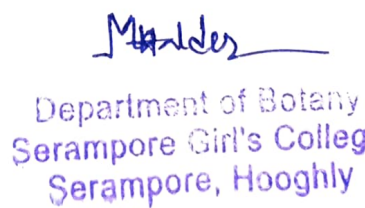 Department of Botany
Serampore Girl's Colleg
Serampore, Hooghly